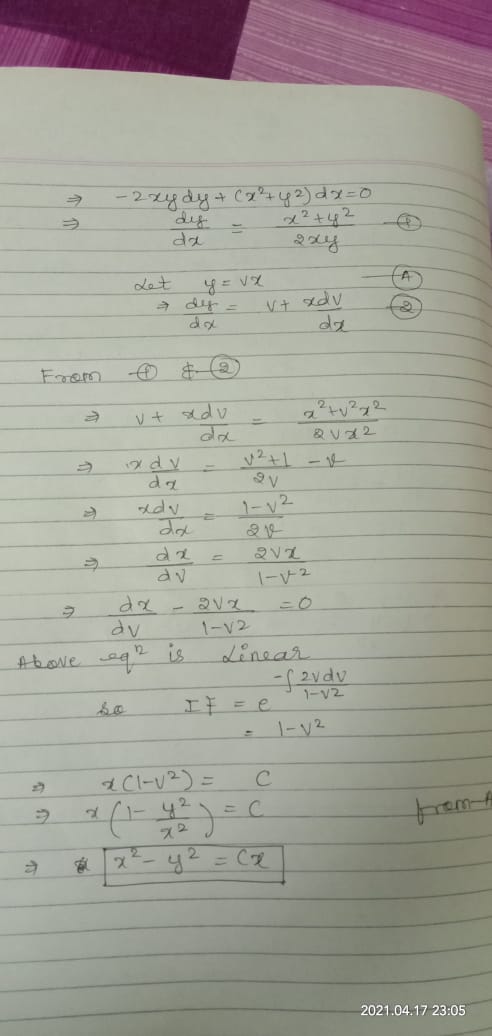 ⇒ -2xydy + (x²+y²)dx=0
⇒ dy/dx = (x²+y²)/2xy —①
Let y = vx —Ⓐ
⇒ dy/dx = v + xdv/dx —②
From ① & ②
⇒ v + xdv/dx = (x²+v²x²)/2vx²
⇒ xdv/dx = (v²+1)/2v - v
⇒ xdv/dx = (1-v²)/2v
⇒ dx/dv = 2vx/(1-v²)
⇒ dx/dv - 2vx/(1-v2) = 0
Above eqⁿ is Linear
so IF = e^(-∫2vdv/(1-v2))
= 1-v²
⇒ x(1-v²) = C
⇒ x(1- y²/x²) = C from A
⇒ x²-y² = Cx
2021.04.17 23:05